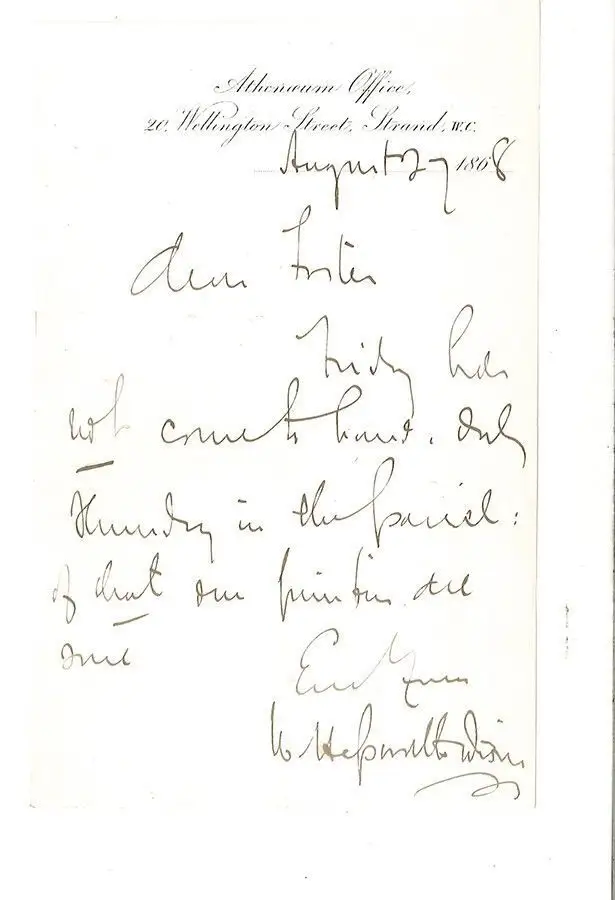 Athenæum Office,
20, Wellington Street, Strand, W.C.
August 27 1868
dear Foster
Friday has
not come to hand. Only
Thursday in the parcel:
of that our printer
sure
Ever Yours
W Hepworth Dixon